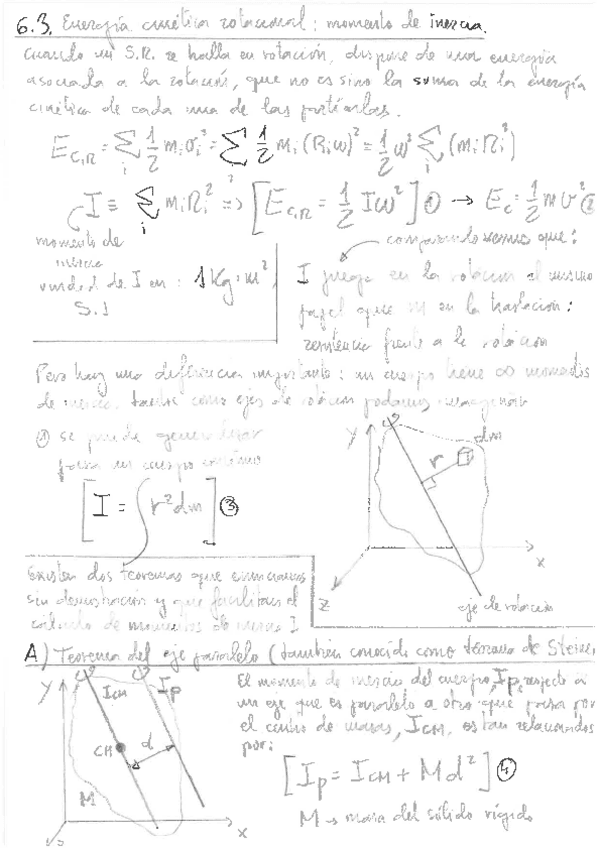 6.3. Energía cinética rotacional: momento de inercia.
Cuando un S.R. se halla en rotación, dispone de una energía
asociada a la rotación, que no es sino la suma de la energía
cinética de cada una de las partículas.
E_{C,R} = ∑_i 1/2 m_i v_i² = ∑ 1/2 m_i (R_i ω)² = 1/2 ω² ∑_i (m_i R_i²)
I ≡ ∑_i m_i R_i² ⇒ [E_{C,R} = 1/2 I ω²] ① → E_c = 1/2 m v² ②
momento de
inercia
comparando vemos que:
unidad de I en: 1 kg·m²
S.I
I juega en la rotación el mismo
papel que m en la traslación:
resistencia frente a la rotación
Pero hay una diferencia importante: un cuerpo tiene ∞ momentos
de inercia, tantos como ejes de rotación podamos imaginar
① se puede generalizar
para un cuerpo continuo
[I = ∫ r² dm] ③
Y
dm
r
X
Z
eje de rotación
Existen dos teoremas que enunciamos
sin demostración y que facilitan el
cálculo de momentos de inercia I
A) Teorema del eje paralelo (también conocido como teorema de Steiner
Y
I_CM
I_P
CM
d
M
X
Z
El momento de inercia del cuerpo, I_P, respecto a
un eje que es paralelo a otro que pasa por
el centro de masas, I_CM, están relacionados
por:
[I_P = I_CM + M d²] ④
M → masa del sólido rígido